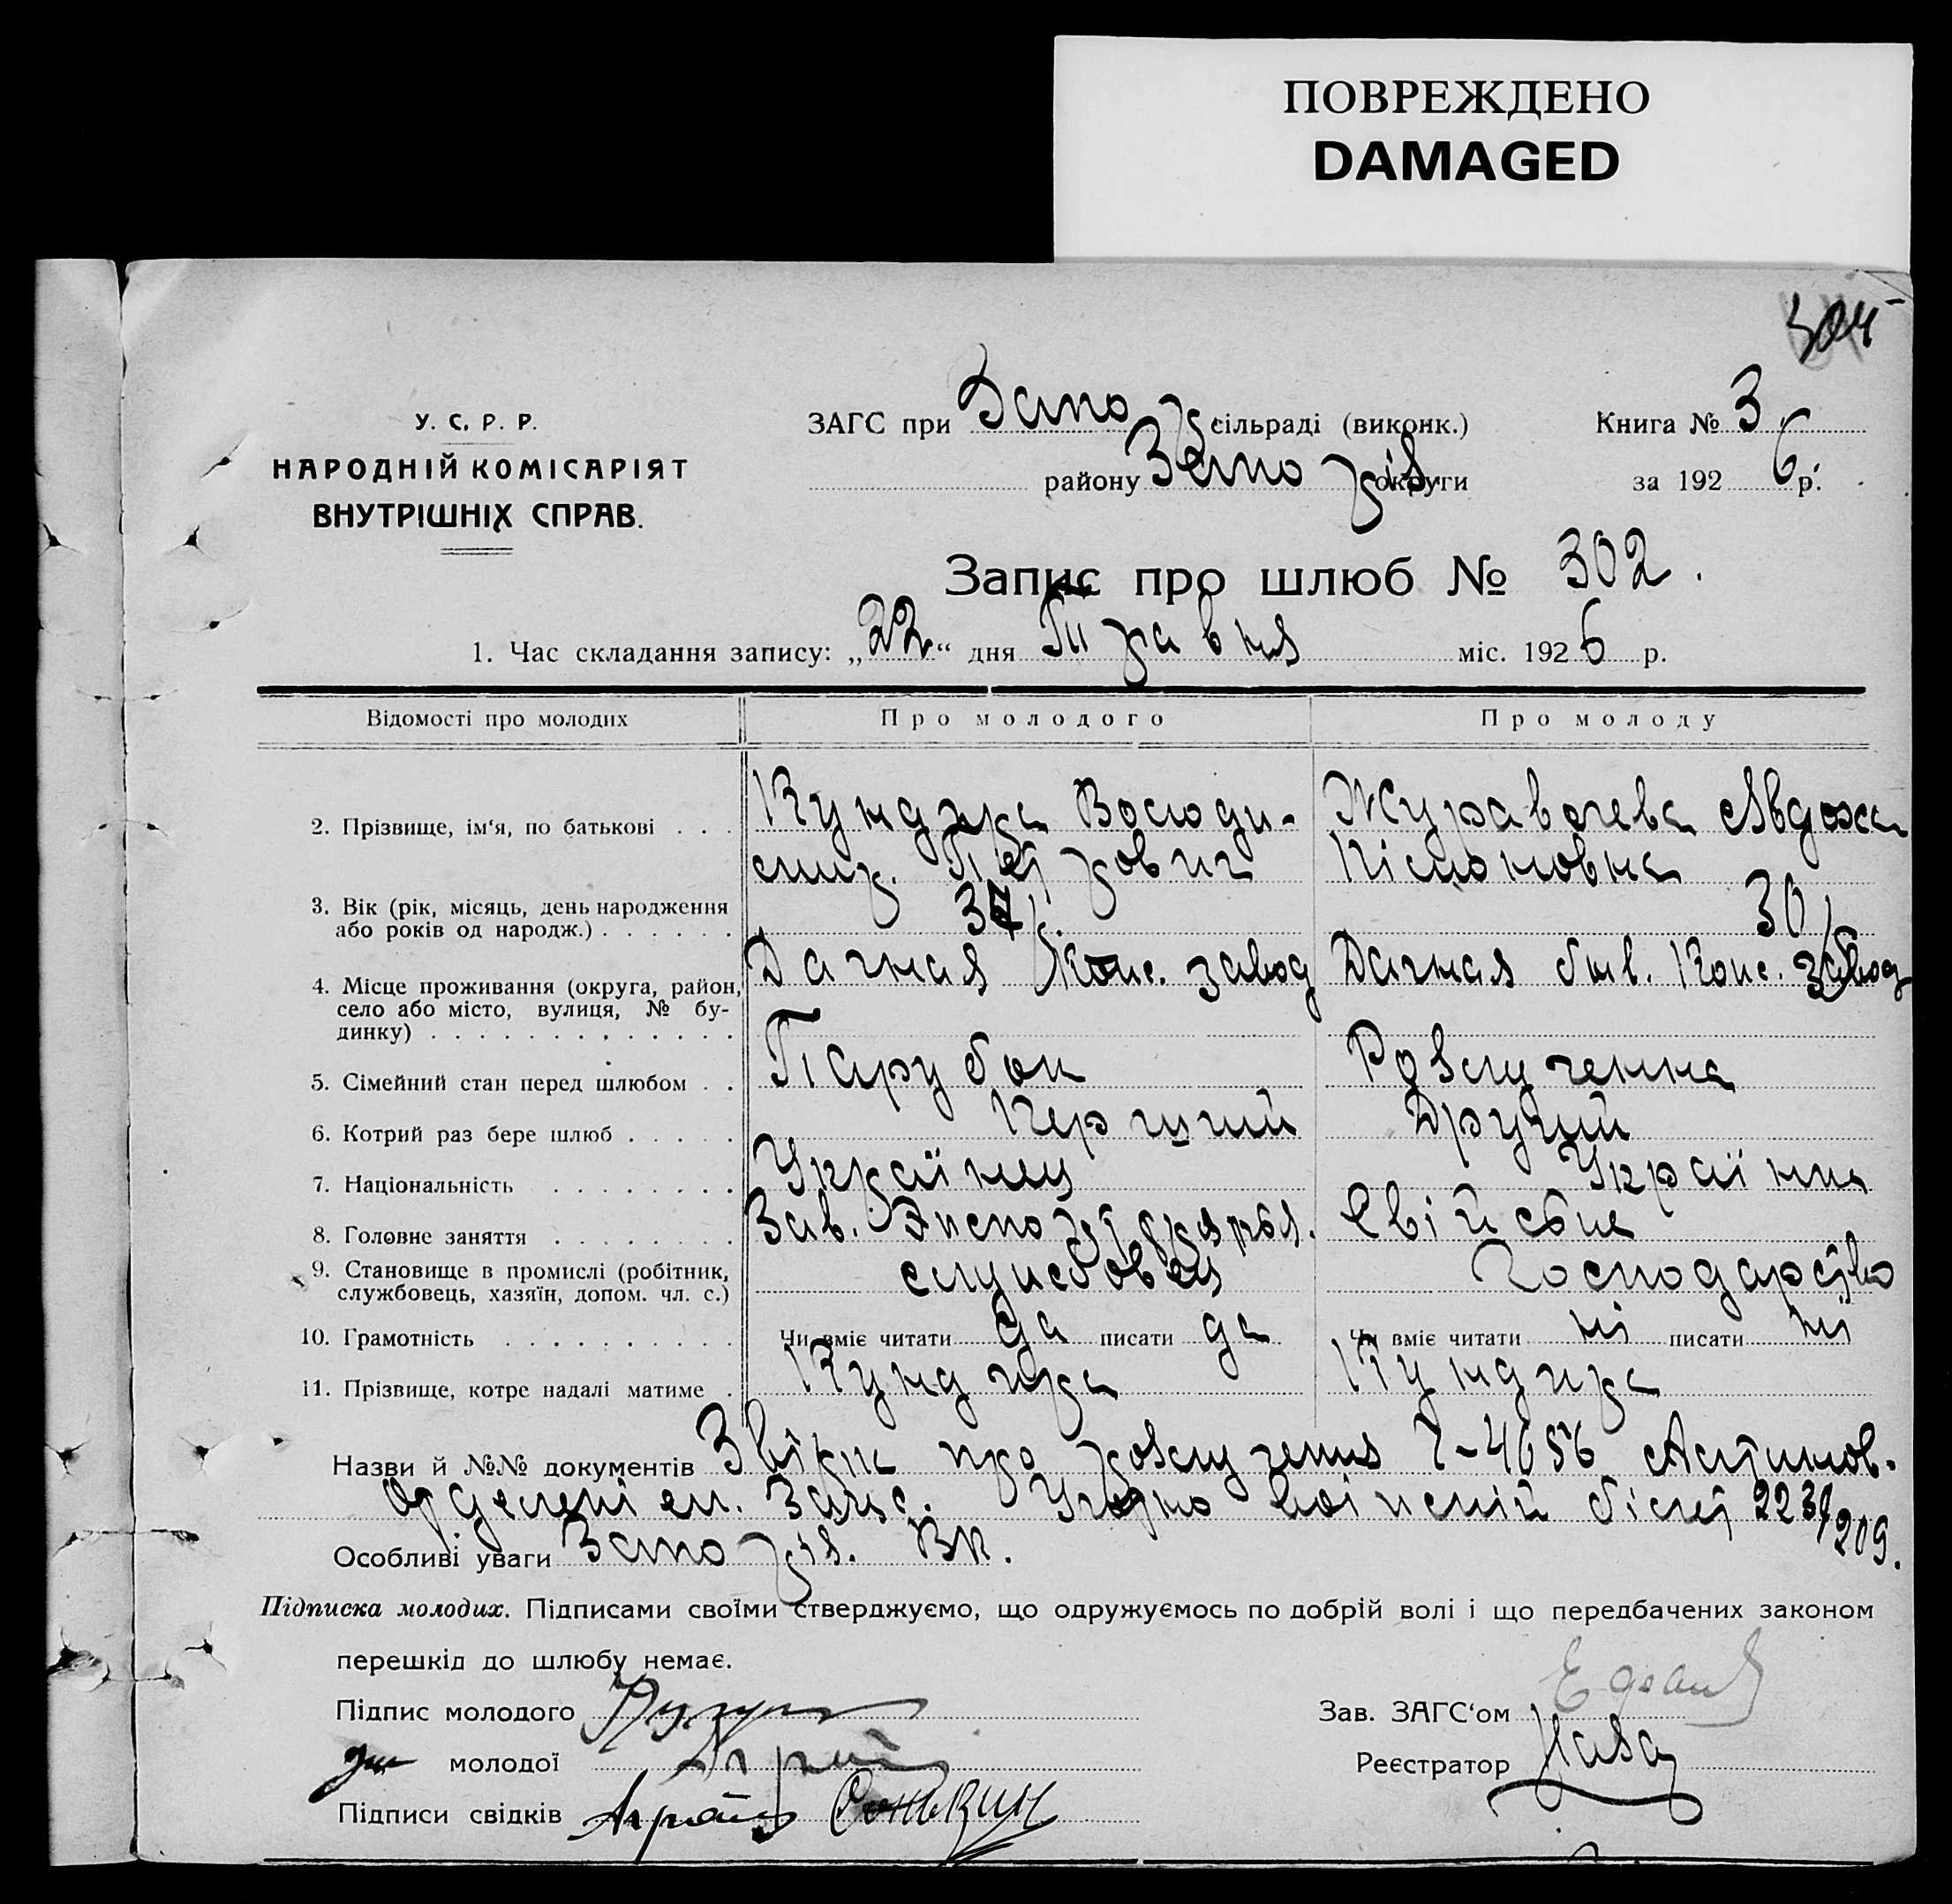 ПОВРЕЖДЕНО
DAMAGED
304
У. С. Р. Р.
НАРОДНІЙ КОМІСАРІЯТ
ВНУТРІШНІХ СПРАВ.
ЗАГС при Запо сільраді (виконк.) Книга № 3
району Запоріз округи за 1926 р.
Запис про шлюб № 302.
1. Час складання запису: „22“ дня Травня міс. 1926 р.
Відомості про молодих Про молодого Про молоду
2. Прізвище, ім‘я, по батькові Кундира Володи- Журавлева Явдоха
мир. Петрович
3. Вік (рік, місяць, день народження
або років од народж.) 37 30
4. Місце проживання (округа, район, Дачная Конс. завод Дачная був. Конс. завод
село або місто, вулиця, № бу-
динку)
5. Сімейний стан перед шлюбом Парубок Розлученна
6. Котрий раз бере шлюб Перший Другий
7. Національність Українец Українка
8. Головне заняття Зав. Свійське
9. Становище в промислі (робітник, службовец Господарство
службовець, хазяїн, допом. чл. с.)
10. Грамотність Чи вміє читати да писати да Чи вміє читати ні писати ні
11. Прізвище, котре надалі матиме Кундира Кундира
Назви й №№ документів про розлученя
білет 2231/209.
Особливі уваги Запоріз. ВК.
Підписка молодих. Підписами своїми стверджуємо, що одружуємось по добрій волі і що передбачених законом
перешкід до шлюбу немає.
Підпис молодого Зав. ЗАГС‘ом
молодої Реєстратор
Підписи свідків